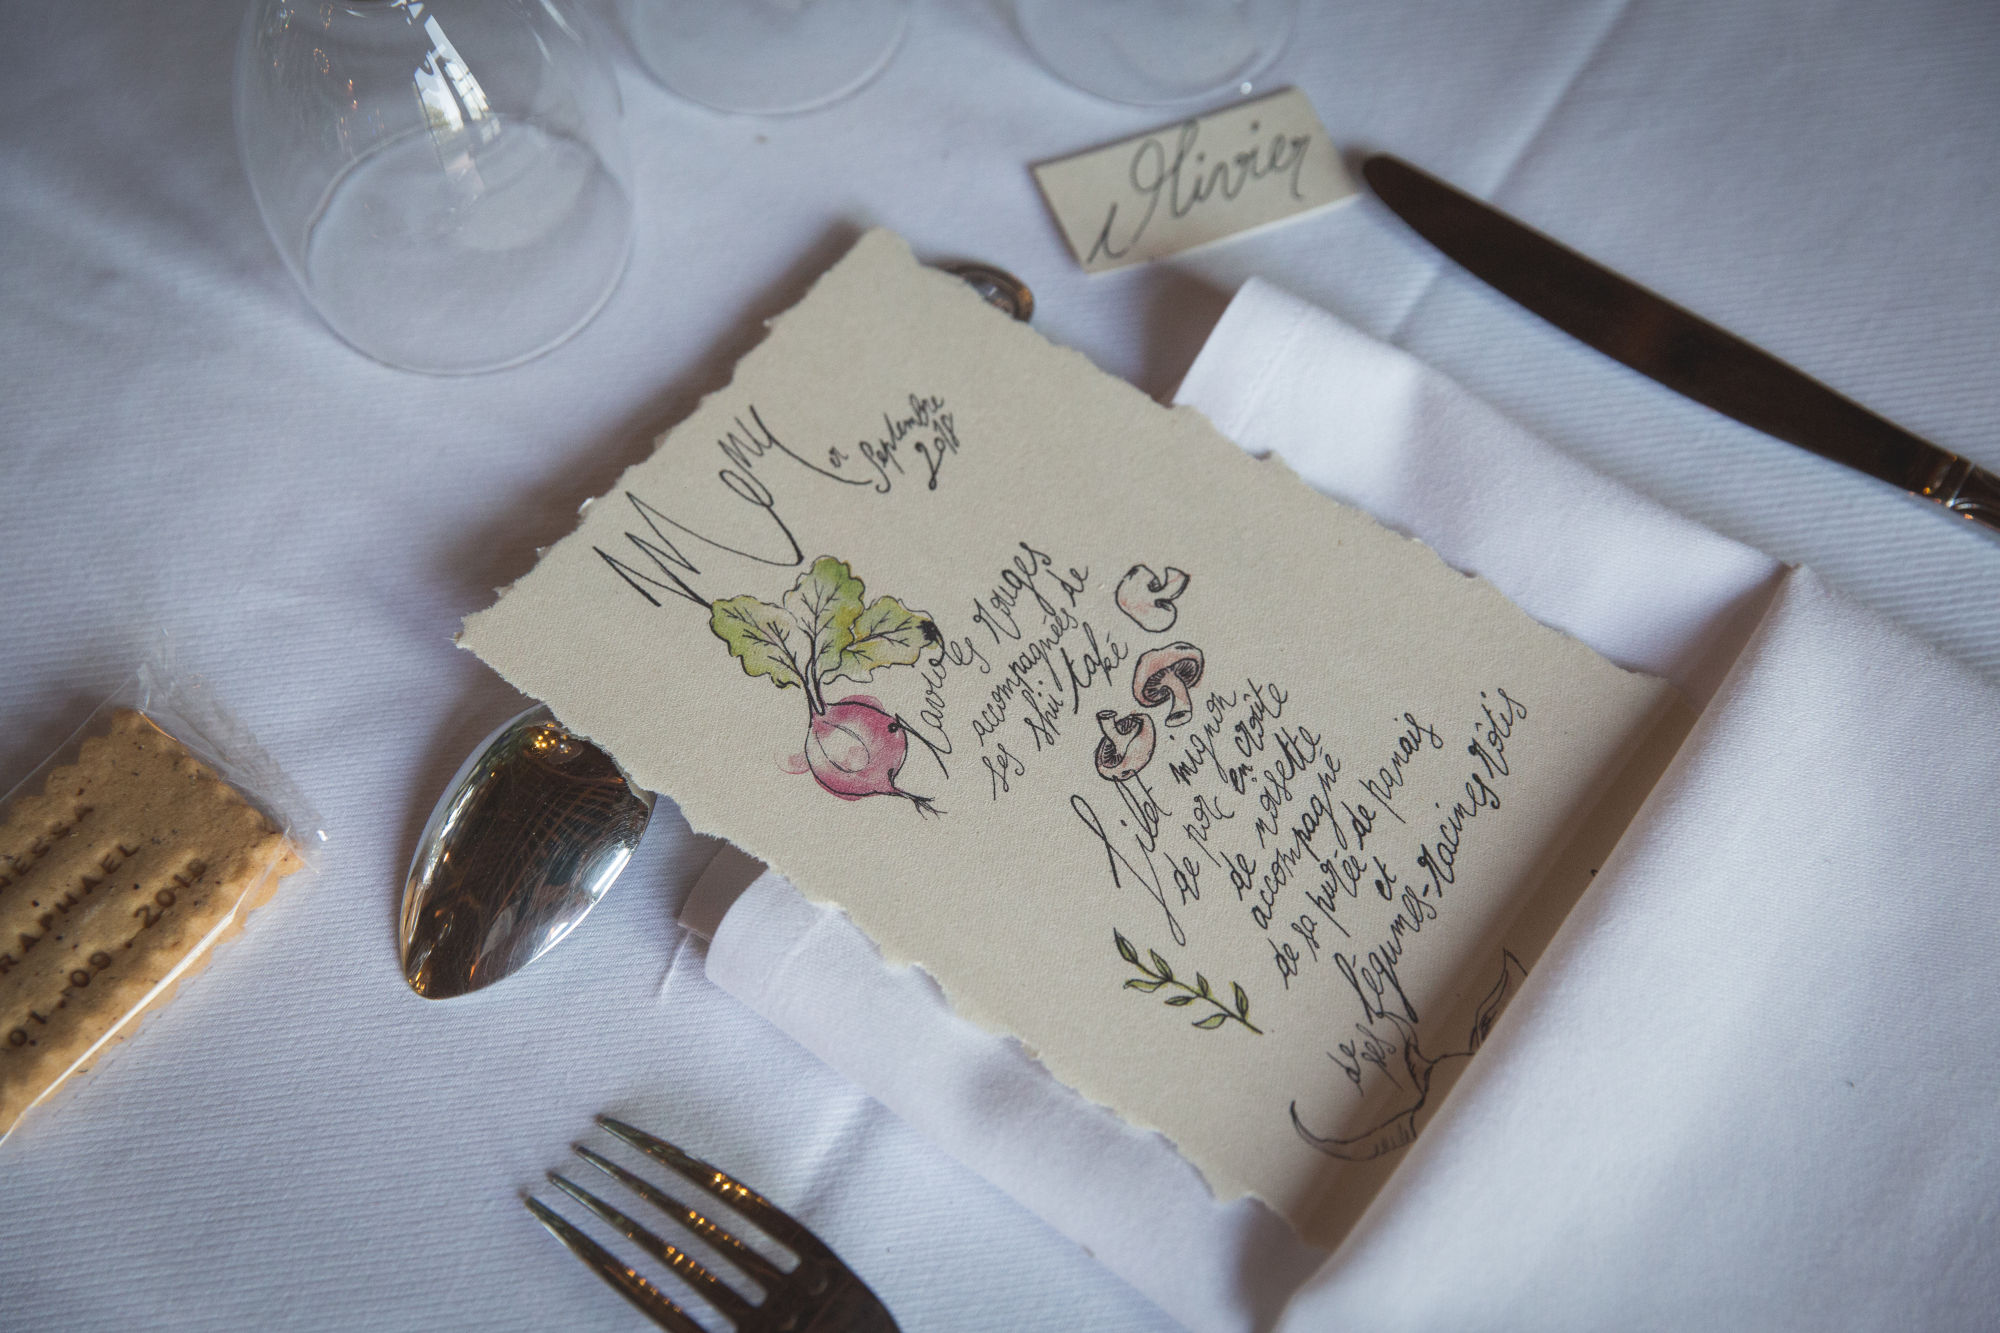 Olivier
Menu
1er
Septembre
2018
Ravioles Rouges
accompagnées de
ses shii také
Filet mignon
de porc en croûte
de noisette
accompagné
de sa purée de panais
et
de ses légumes-racines rôtis
NESSA
RAPHAEL
01.09.2018